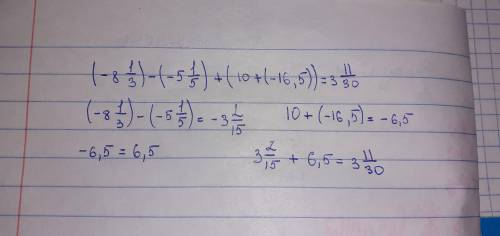 (-8 1/3)-(-5 1/5)+(10+(-16,5))=3 11/30
(-8 1/3)-(-5 1/5)=-3 2/15 10+(-16,5)=-6,5
-6,5=6,5 3 2/15+6,5=3 11/30